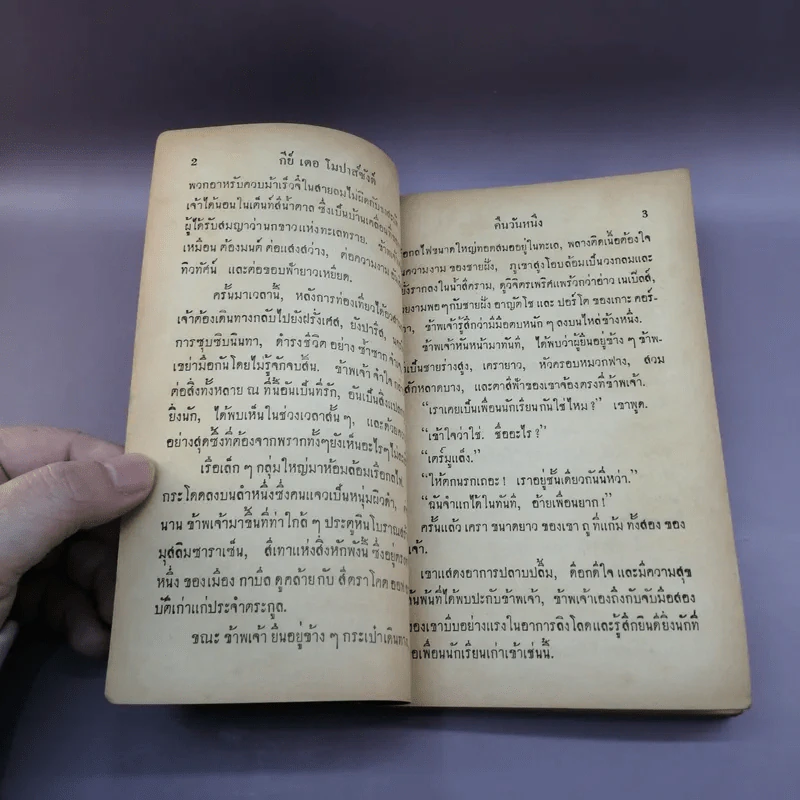 2
กีย์ เดอ โมปาส์ซังต์
พวกอาหรับควบม้าเร็วจี๋ในสายลมไม่ผิดกับ
เจ้าได้นอนในเต็นท์สีน้ำตาล ซึ่งเป็นบ้านเคลื่อนที่
ผู้ได้รับสมญาว่านกขาวแห่งทะเลทราย. ข้าพเจ้า
เหมือน ต้องมนต์ ต่อแสงสว่าง, ต่อความงาม
ทิวทัศน์ และต่อขอบฟ้ายาวเหยียด.
ครั้นมาเวลานี้, หลังการท่องเที่ยวได้
เจ้าต้องเดินทางกลับไปยังฝรั่งเศส, ยังปารีส,
การซุบซิบนินทา, ดำรงชีวิต อย่าง ซ้ำซาก
เขย่ามือกันโดยไม่รู้จักจบสิ้น. ข้าพเจ้า จำใจ
ต่อสิ่งทั้งหลาย ณ ที่นี้อันเป็นที่รัก, อันเป็นสิ่ง
ยิ่งนัก, ได้พบเห็นในช่วงเวลาสั้น ๆ, และด้วย
อย่างสุดซึ้งที่ต้องจากพรากทั้งๆยังเห็นอะไรๆไม่
เรือเล็ก ๆ กลุ่มใหญ่มาห้อมล้อมเรือกลไฟ
กระโดดลงบนลำหนึ่งซึ่งคนแจวเป็นหนุ่มผิวดำ,
นาน ข้าพเจ้ามาขึ้นที่ท่าใกล้ ๆ ประตูหินโบราณ
มุสลิมซาราเซ็น, สีเทาแห่งสิ่งหักพังนี้ ซึ่งอยู่
หนึ่ง ของเมือง กาบิล ดูคล้าย กับ สีตราโคต
บัติเก่าแก่ประจำตระกูล.
ขณะ ข้าพเจ้า ยืนอยู่ข้าง ๆ กระเป๋าเดินทาง
คืนวันหนึ่ง
3
ขนาดใหญ่ทอดสมออยู่ในทะเล, พลางคิดเนื้อต้องใจ
ความงาม ของชายฝั่ง, ภูเขาสูงโอบล้อมเป็นวงกลมและ
รากลงในน้ำสีคราม, ดูวิจิตรเพริศแพร้วกว่าอ่าว เนเปิลส์,
งามพอๆกับชายฝั่ง อาญัคโช และ ปอร์โต ของเกาะ คอร์-
ข้าพเจ้ารู้สึกว่ามีมือตบหนัก ๆ ลงบนไหล่ข้างหนึ่ง.
ข้าพเจ้าหันหน้ามาทันที, ได้พบว่าผู้ยืนอยู่ข้าง ๆ ข้าพ-
เป็นชายร่างสูง, เครายาว, หัวครอบหมวกฟาง, สวม
สักหลาดบาง, และตาสีฟ้าของเขาจ้องตรงที่ข้าพเจ้า.
“เราเคยเป็นเพื่อนนักเรียนกันใช่ไหม?” เขาพูด.
“เข้าใจว่าใช่. ชื่ออะไร?”
“เตร์มูแล็ง.”
“ให้ตกนรกเถอะ! เราอยู่ชั้นเดียวกันนี่หว่า.”
“ฉันจำแกได้ในทันที, อ้ายเพื่อนยาก!”
ครั้นแล้ว เครา ขนาดยาว ของเขา ถู ที่แก้ม ทั้งสอง ของ
เจ้า.
เขาแสดงอาการปลาบปลื้ม, ดีอกดีใจ และมีความสุข
พ้นที่ได้พบปะกับข้าพเจ้า, ข้าพเจ้าเองถึงกับจับมือสอง
ของเขาบีบอย่างแรงในอาการลิงโลดและรู้สึกยินดียิ่งนักที่
เพื่อนนักเรียนเก่าเข้าเช่นนี้.